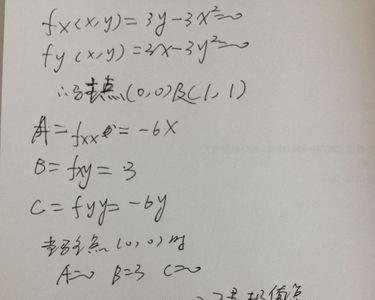 fx(x,y)=3y-3x²=0
fy(x,y)=3x-3y²=0
∴驻点(0,0)及(1,1)
A=fxx=-6x
B=fxy=3
C=fyy=-6y
当驻点(0,0)时
A=0 B=3 C=0
极值点